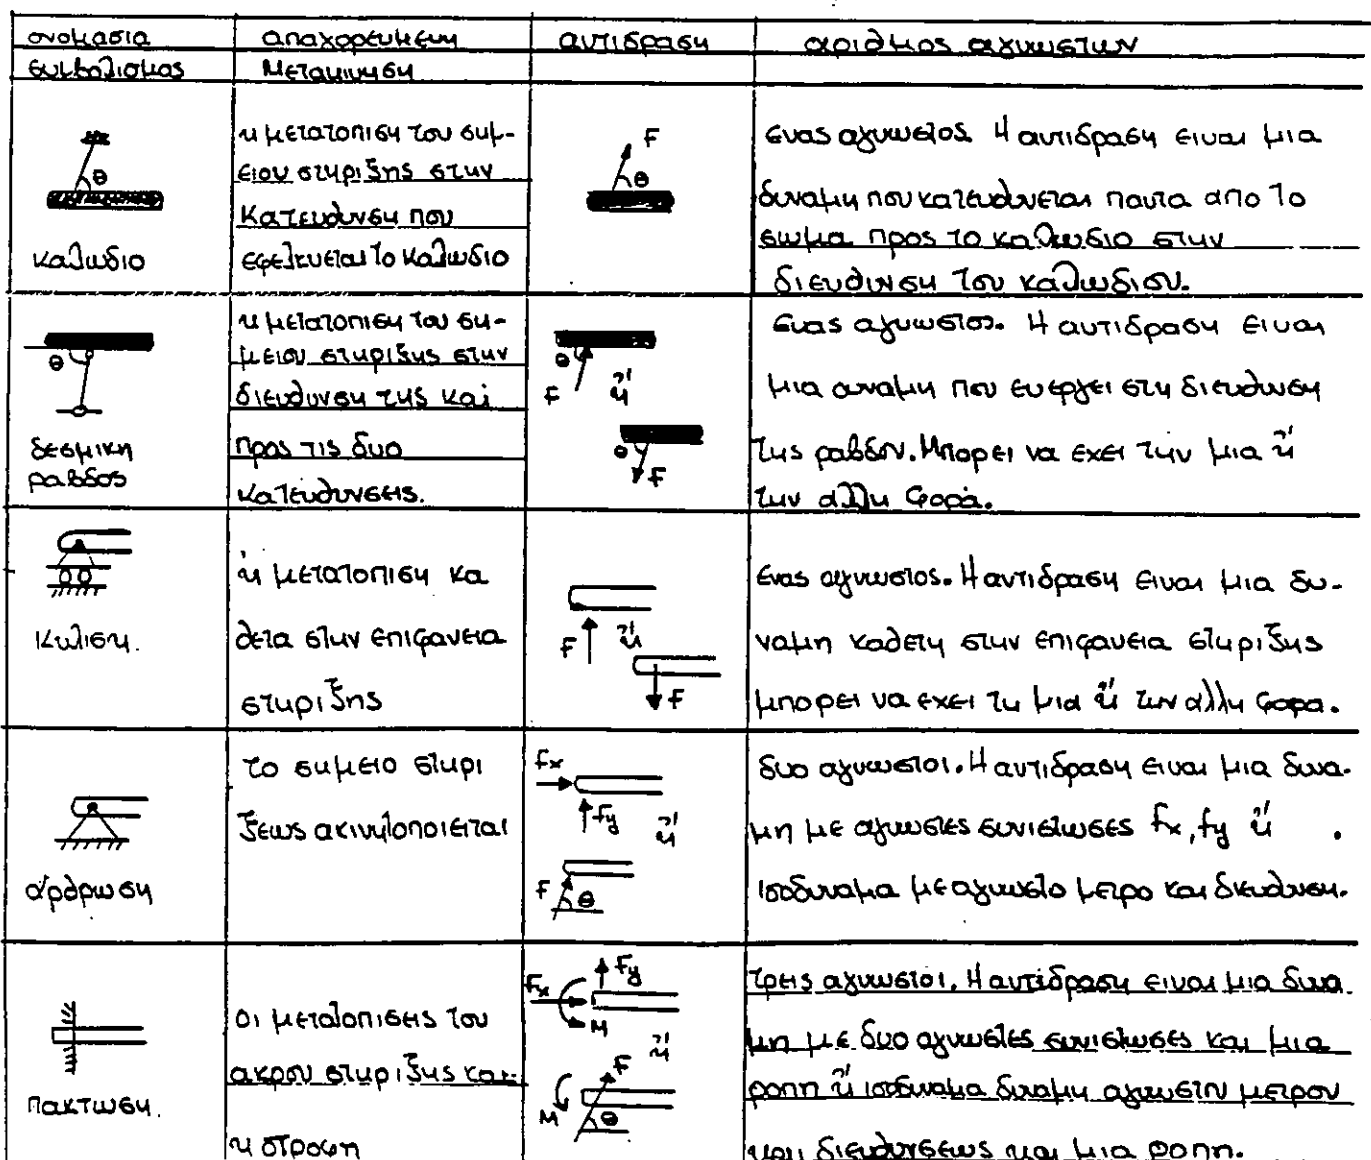 ονομασια απαχορευμενη αντιδραση αριθμος αγνωστων
συμβολισμος Μετακινηση
η μετατοπιση του σημ-
ειου στηριξης στην
Κατευθυνση που
εφελκυεται το καλωδιο
θ
καλωδιο
F
θ
ενας αγνωστος. Η αντιδραση ειναι μια
δυναμη που κατευθυνεται παντα απο το
σωμα προς το καλωδιο στην
διευθυνση του καλωδιου.
η μετατοπιση του ση-
μειου στηριξης στην
διευθυνση της και
προς τις δυο
κατευθυνσεις.
θ
δεσμικη
ραβδος
θ
F ή
θ
F
Ενας αγνωστος. Η αντιδραση ειναι
μια δυναμη που ενεργει στη διευθυνση
της ραβδου. Μπορει να εχει την μια ή
την αλλη φορά.
Κυλιση.
ή μετατοπιση κα
θετα στην επιφανεια
στηριξης
F ή
F
ενας αγνωστος. Η αντιδραση ειναι μια δυ-
ναμη καθετη στην επιφανεια στηριξης
μπορει να εχει τη μια ή την αλλη φορα.
άρθρωση
το σημειο στηρι
ξεως ακινητοποιειται
fx
fy ή
F θ
δυο αγνωστοι. Η αντιδραση ειναι μια δυνα-
μη με αγνωστες συνιστωσες fx, fy ή .
ισοδυναμα με αγνωστο μετρο και διευθυνση.
Πακτωση.
οι μετατοπισεις του
ακρου στηριξης και
η στροφη
Fx Fy
M ή
F
M θ
τρεις αγνωστοι. Η αντίδραση ειναι μια δυνα
μη με δυο αγνωστες συνιστωσες και μια
ροπη ή ισοδυναμα δυναμη αγνωστου μετρου
και διευθυνσεως και μια ροπη.